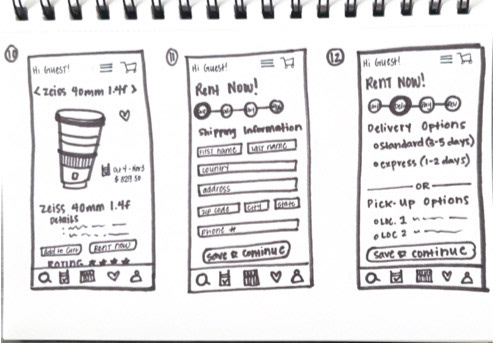 10
Hi Guest!
< Zeiss 40mm 1.4f >
$829.50
Zeiss 40mm 1.4f
Details
Add to Cart
Rent Now
Rating
11
Hi Guest!
Rent Now!
Shipping Information
First name
Last name
Country
address
Zip code
City
State
Phone #
Save & Continue
12
Hi Guest!
Rent Now!
Delivery Options
Standard (3-5 days)
express (1-2 days)
OR
Pick-up Options
Loc. 1
Loc 2
Save & continue